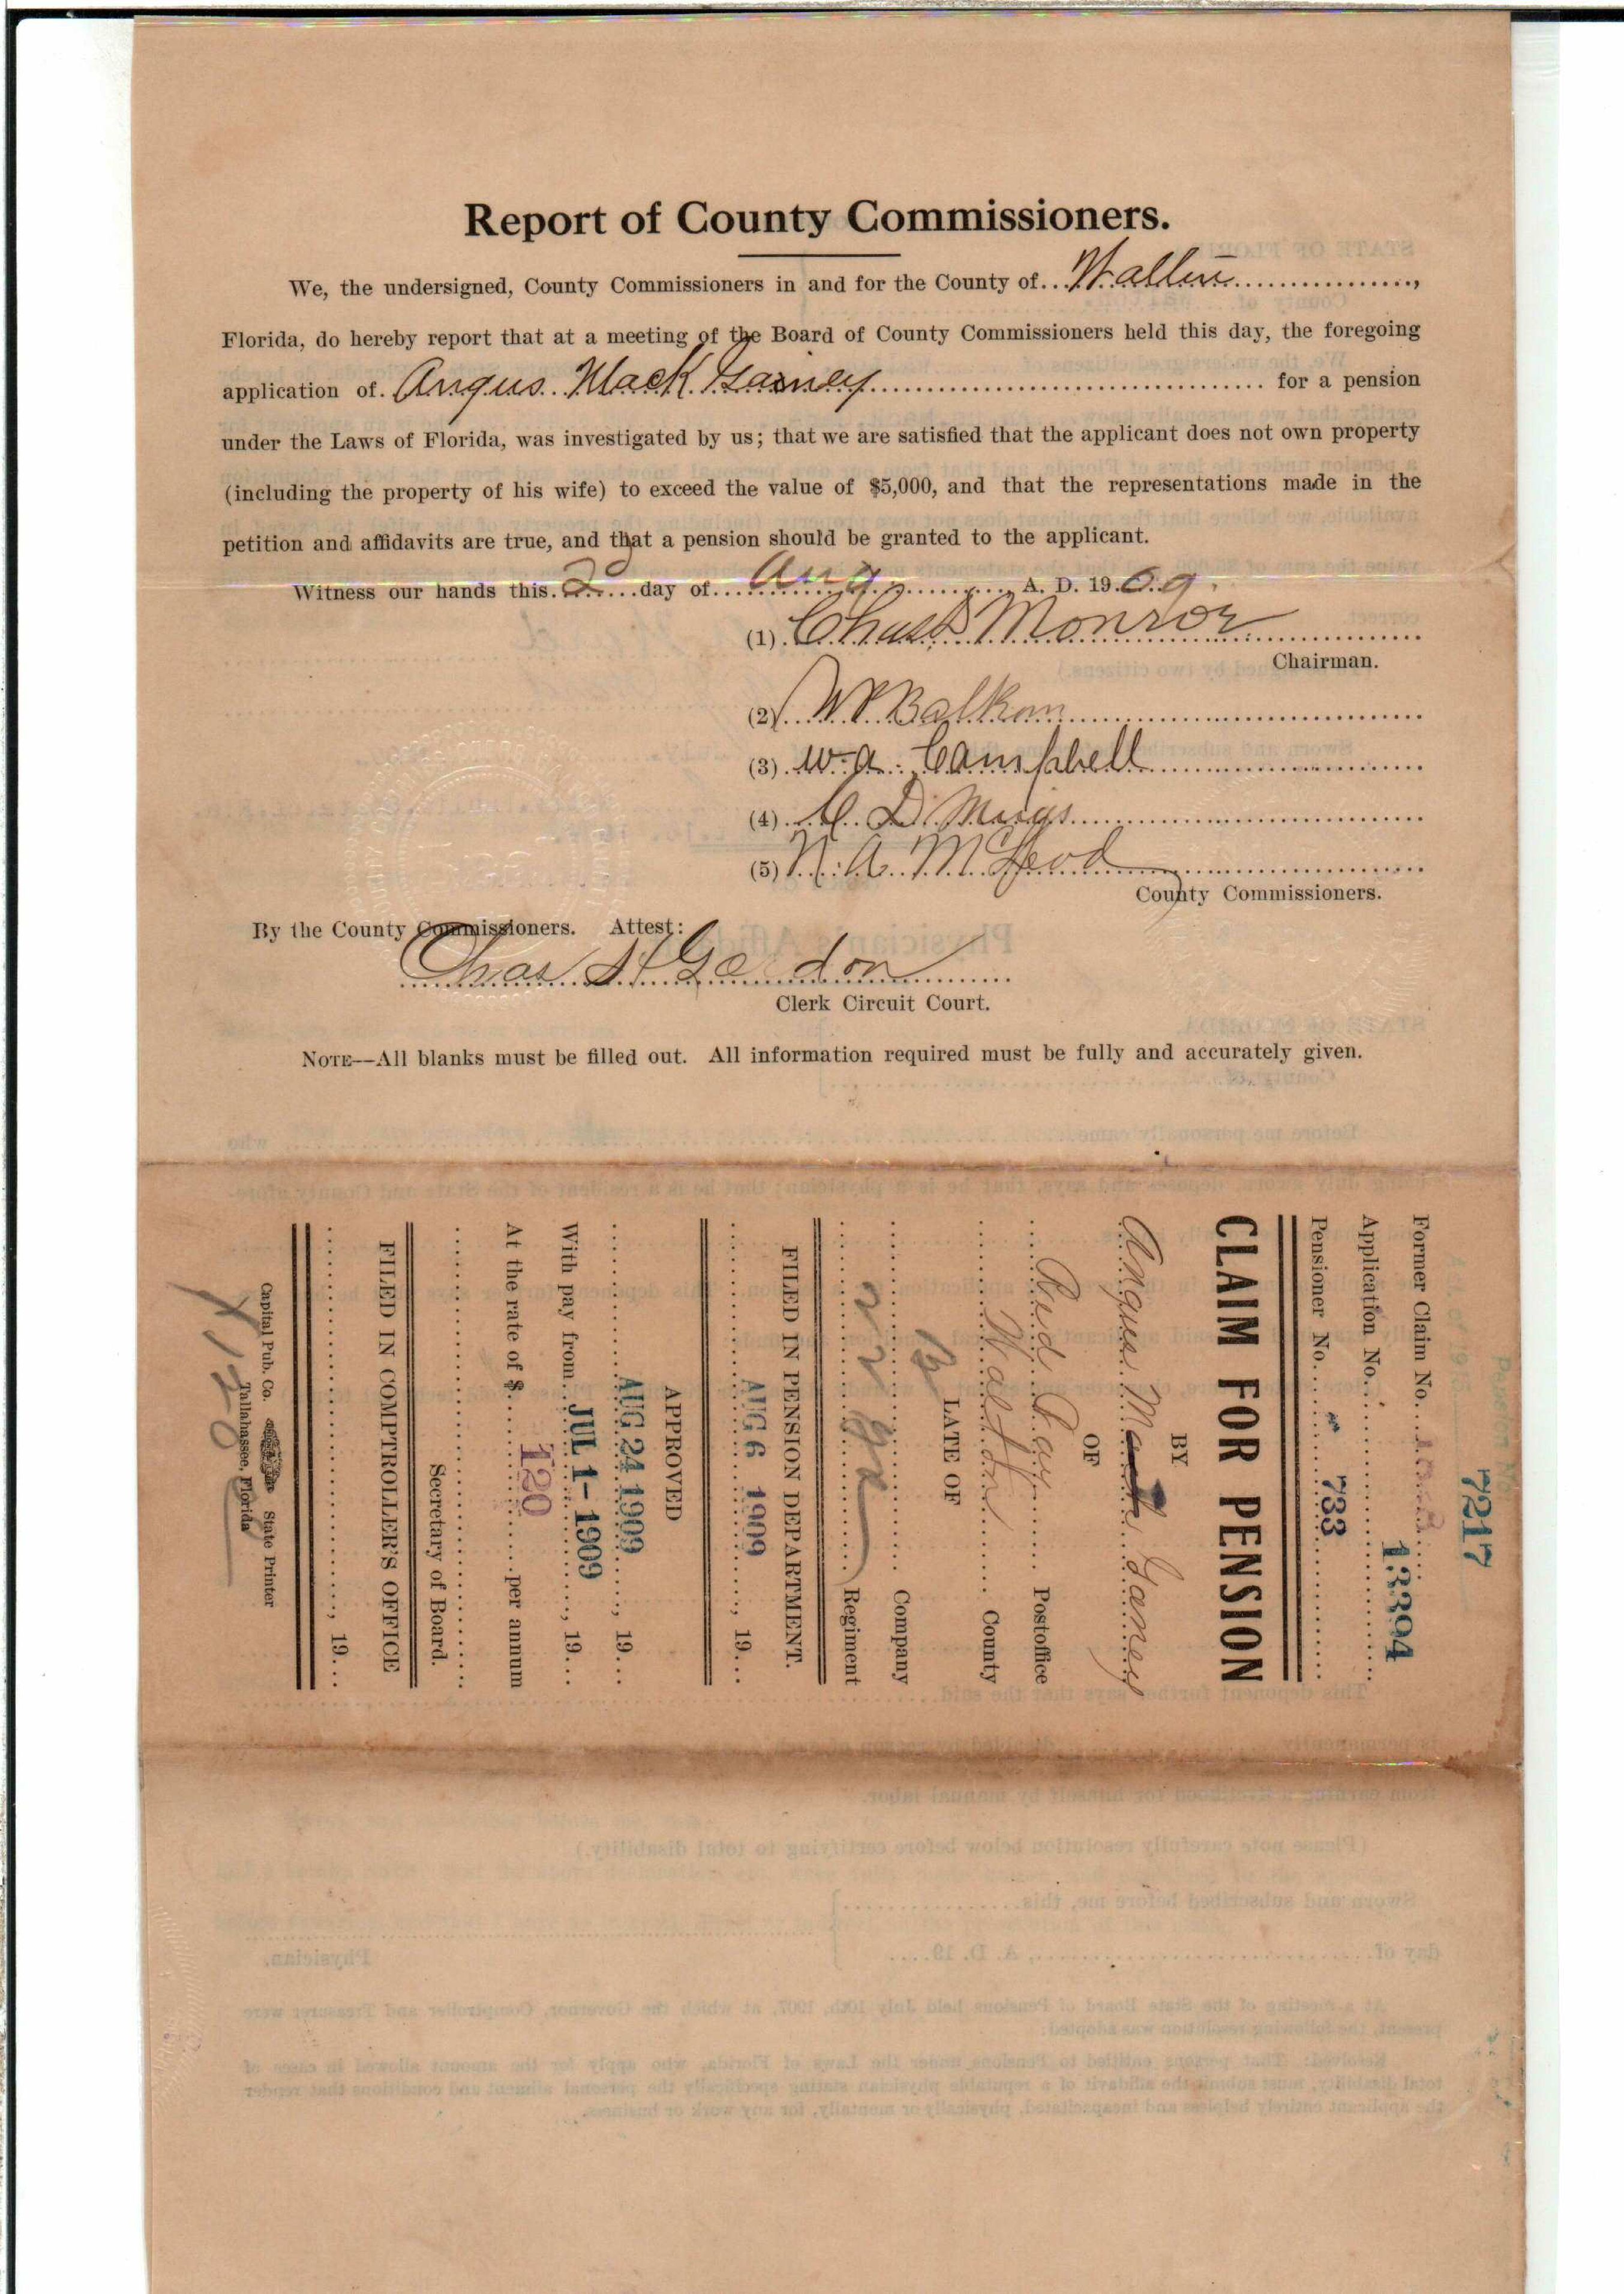 Report of County Commissioners.
We, the undersigned, County Commissioners in and for the County of Walton,
Florida, do hereby report that at a meeting of the Board of County Commissioners held this day, the foregoing
application of Angus Mack Gainey for a pension
under the Laws of Florida, was investigated by us; that we are satisfied that the applicant does not own property
(including the property of his wife) to exceed the value of $5,000, and that the representations made in the
petition and affidavits are true, and that a pension should be granted to the applicant.
Witness our hands this 2 day of Aug A. D. 1909.
(1) Monroe
Chairman.
(2) W Balkom
(3) W. A. Campbell
(4) D Meigs
(5) N. A. McLeod
County Commissioners.
By the County Commissioners. Attest:
Chas H Gordon
Clerk Circuit Court.
NOTE—All blanks must be filled out. All information required must be fully and accurately given.
7217
Former Claim No.
Application No. 13394
Pensioner No. 733
CLAIM FOR PENSION
BY
Angus Mack Ganey
OF
Red Bay Postoffice
Walton County
LATE OF
Company
Regiment
FILED IN PENSION DEPARTMENT.
AUG 6 1909, 19
APPROVED
AUG 24 1909, 19
With pay from JUL 1- 1909, 19
At the rate of $ 120 per annum
Secretary of Board.
FILED IN COMPTROLLER'S OFFICE
, 19
Capital Pub. Co. State Printer
Tallahassee, Florida